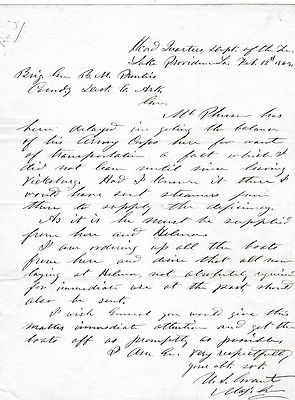 Head Quarters, Dept. of the Te.
Lake Providence La. Feb. 12th 1863.
Brig. Gen. B. M. Prentiss
Comdg Dist. E. Ark.
Gen.
McPherson has
been delayed in getting the balance
of his Army Corps here for want
of transportation a fact which I
did not learn until since leaving
Vicksburg. Had I known it there I
would have sent steamers from
there to supply the deficiency.
As it is he must be supplied
from here and Helena.
I am ordering up all the boats
from here and desire that all now
laying at Helena not absolutely required
for immediate use at the post should
also be sent.
I wish General you would give this
matter immediate attention and get the
boats off as promptly as possible.
I am Gen. very respectfully
your obt. svt.
U. S. Grant
Maj. Gen